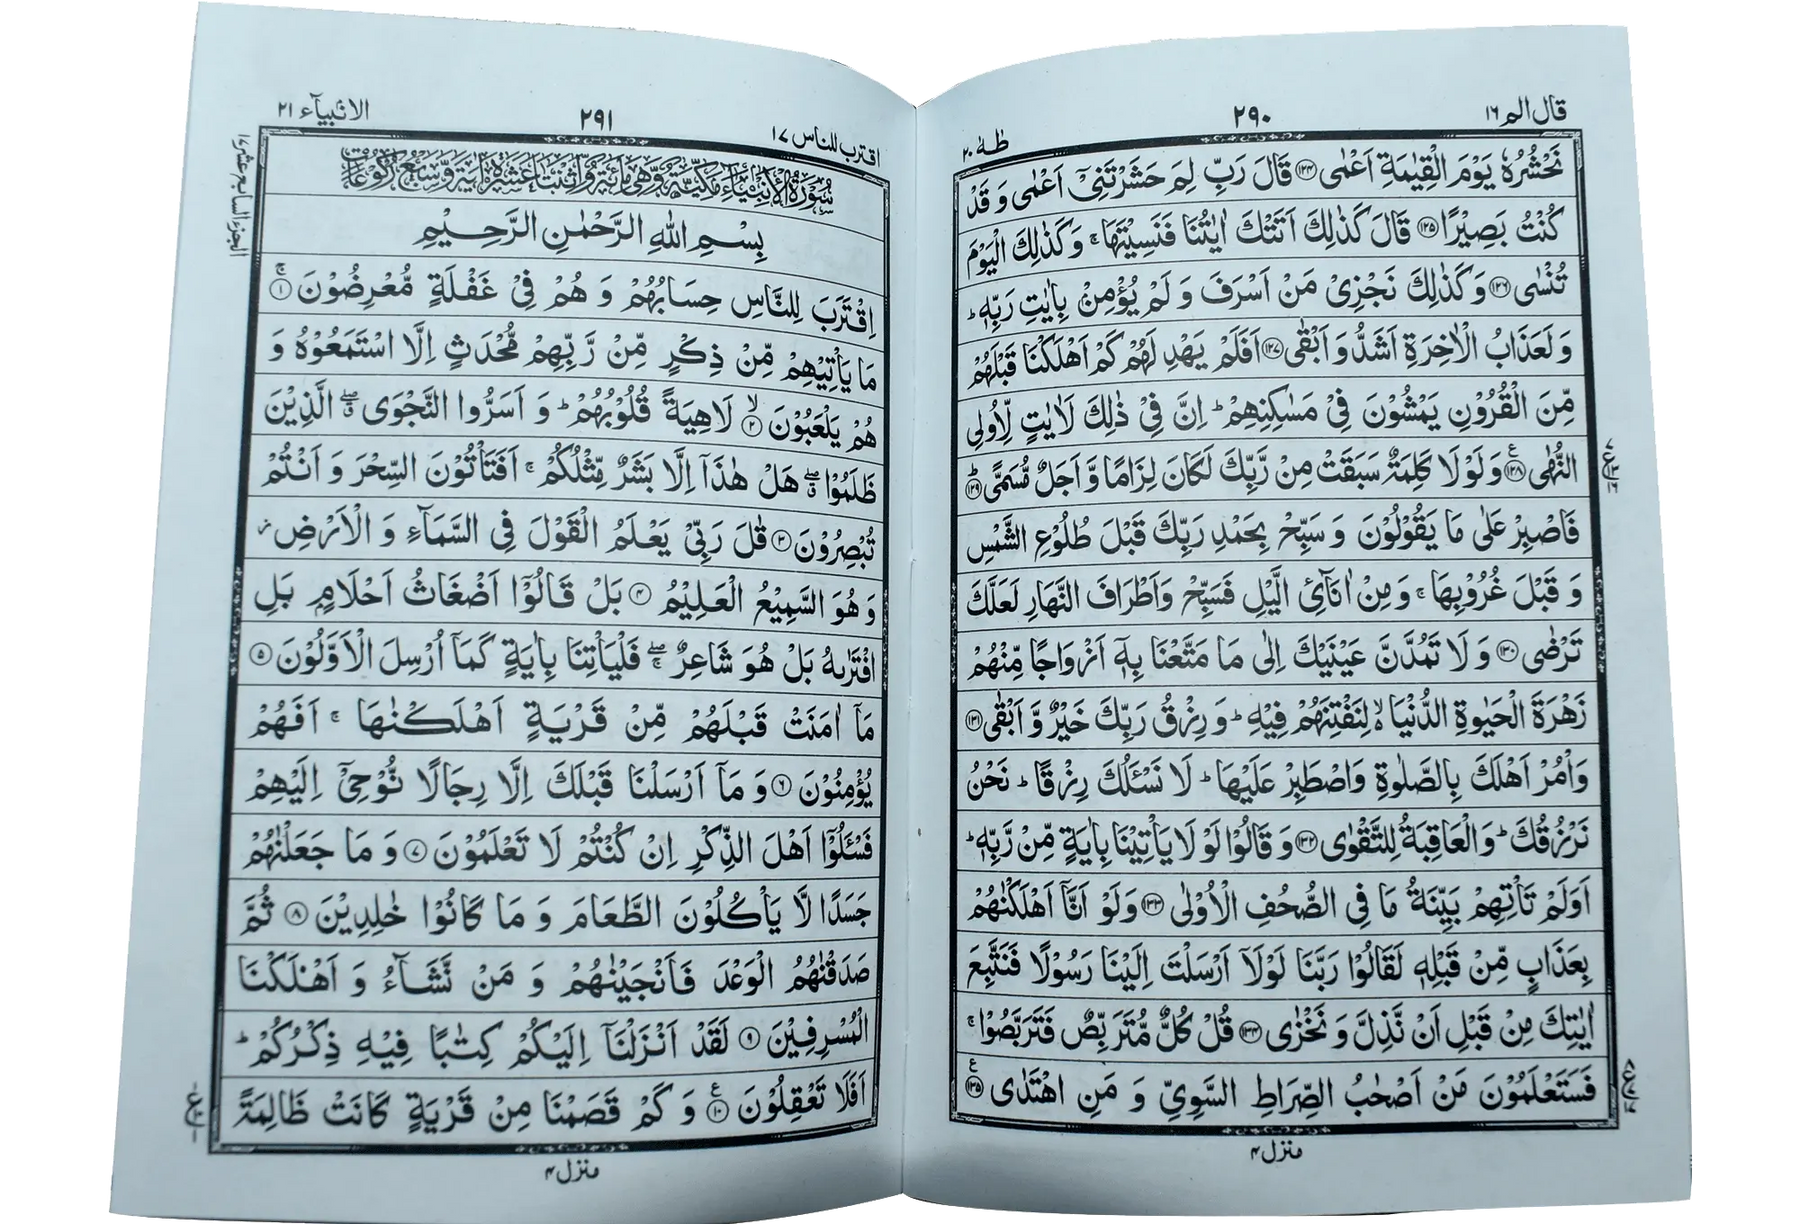 قال الم ١٦
٢٩٠
طٰهٰ ٢٠
نَحْشُرُهٗ يَوْمَ الْقِيٰمَةِ اَعْمٰى ﴿۱۲۴﴾ قَالَ رَبِّ لِمَ حَشَرْتَنِيْٓ اَعْمٰى وَ قَدْ
كُنْتُ بَصِيْرًا ﴿۱۲۵﴾ قَالَ كَذٰلِكَ اَتَتْكَ اٰيٰتُنَا فَنَسِيْتَهَا ۚ وَ كَذٰلِكَ الْيَوْمَ
تُنْسٰى ﴿۱۲۶﴾ وَ كَذٰلِكَ نَجْزِيْ مَنْ اَسْرَفَ وَ لَمْ يُؤْمِنْۢ بِاٰيٰتِ رَبِّهٖ ؕ
وَ لَعَذَابُ الْاٰخِرَةِ اَشَدُّ وَ اَبْقٰى ﴿۱۲۷﴾ اَفَلَمْ يَهْدِ لَهُمْ كَمْ اَهْلَكْنَا قَبْلَهُمْ
مِّنَ الْقُرُوْنِ يَمْشُوْنَ فِيْ مَسٰكِنِهِمْ ؕ اِنَّ فِيْ ذٰلِكَ لَاٰيٰتٍ لِّاُولِي
النُّهٰى ﴿۱۲۸﴾ وَ لَوْ لَا كَلِمَةٌ سَبَقَتْ مِنْ رَّبِّكَ لَكَانَ لِزَامًا وَّ اَجَلٌ مُّسَمًّى ﴿۱۲۹﴾
فَاصْبِرْ عَلٰى مَا يَقُوْلُوْنَ وَ سَبِّحْ بِحَمْدِ رَبِّكَ قَبْلَ طُلُوْعِ الشَّمْسِ
وَ قَبْلَ غُرُوْبِهَا ۚ وَ مِنْ اٰنَآئِ الَّيْلِ فَسَبِّحْ وَ اَطْرَافَ النَّهَارِ لَعَلَّكَ
تَرْضٰى ﴿۱۳۰﴾ وَ لَا تَمُدَّنَّ عَيْنَيْكَ اِلٰى مَا مَتَّعْنَا بِهٖٓ اَزْوَاجًا مِّنْهُمْ
زَهْرَةَ الْحَيٰوةِ الدُّنْيَا ۙ۬ لِنَفْتِنَهُمْ فِيْهِ ؕ وَ رِزْقُ رَبِّكَ خَيْرٌ وَّ اَبْقٰى ﴿۱۳۱﴾
وَ اْمُرْ اَهْلَكَ بِالصَّلٰوةِ وَ اصْطَبِرْ عَلَيْهَا ؕ لَا نَسْـَٔلُكَ رِزْقًا ؕ نَحْنُ
نَرْزُقُكَ ؕ وَ الْعَاقِبَةُ لِلتَّقْوٰى ﴿۱۳۲﴾ وَ قَالُوْا لَوْ لَا يَاْتِيْنَا بِاٰيَةٍ مِّنْ رَّبِّهٖ ؕ
اَوَلَمْ تَاْتِهِمْ بَيِّنَةُ مَا فِي الصُّحُفِ الْاُوْلٰى ﴿۱۳۳﴾ وَ لَوْ اَنَّآ اَهْلَكْنٰهُمْ
بِعَذَابٍ مِّنْ قَبْلِهٖ لَقَالُوْا رَبَّنَا لَوْ لَآ اَرْسَلْتَ اِلَيْنَا رَسُوْلًا فَنَتَّبِعَ
اٰيٰتِكَ مِنْ قَبْلِ اَنْ نَّذِلَّ وَ نَخْزٰى ﴿۱۳۴﴾ قُلْ كُلٌّ مُّتَرَبِّصٌ فَتَرَبَّصُوْا ۚ
فَسَتَعْلَمُوْنَ مَنْ اَصْحٰبُ الصِّرَاطِ السَّوِيِّ وَ مَنِ اهْتَدٰى ﴿۱۳۵﴾
منزل ۴
اقترب للناس ١٧
٢٩١
الانبیآء ٢١
الجزء السابع عشر ١٧
سُوْرَةُ الْاَنْبِيَآءِ مَكِّيَّةٌ وَّهِيَ مِائَةٌ وَّاثْنَتَا عَشْرَةَ اٰيَةً وَّسَبْعُ رُكُوْعَاتٍ
بِسْمِ اللّٰهِ الرَّحْمٰنِ الرَّحِيْمِ
اِقْتَرَبَ لِلنَّاسِ حِسَابُهُمْ وَ هُمْ فِيْ غَفْلَةٍ مُّعْرِضُوْنَ ۚ﴿۱﴾
مَا يَاْتِيْهِمْ مِّنْ ذِكْرٍ مِّنْ رَّبِّهِمْ مُّحْدَثٍ اِلَّا اسْتَمَعُوْهُ وَ
هُمْ يَلْعَبُوْنَ ۙ﴿۲﴾ لَاهِيَةً قُلُوْبُهُمْ ؕ وَ اَسَرُّوا النَّجْوَى ۖۗ الَّذِيْنَ
ظَلَمُوْا ۖۗ هَلْ هٰذَآ اِلَّا بَشَرٌ مِّثْلُكُمْ ۚ اَفَتَاْتُوْنَ السِّحْرَ وَ اَنْتُمْ
تُبْصِرُوْنَ ﴿۳﴾ قٰلَ رَبِّيْ يَعْلَمُ الْقَوْلَ فِي السَّمَآءِ وَ الْاَرْضِ ؗ
وَ هُوَ السَّمِيْعُ الْعَلِيْمُ ﴿۴﴾ بَلْ قَالُوْٓا اَضْغَاثُ اَحْلَامٍۭ بَلِ
افْتَرٰىهُ بَلْ هُوَ شَاعِرٌ ۖۚ فَلْيَاْتِنَا بِاٰيَةٍ كَمَآ اُرْسِلَ الْاَوَّلُوْنَ ﴿۵﴾
مَآ اٰمَنَتْ قَبْلَهُمْ مِّنْ قَرْيَةٍ اَهْلَكْنٰهَا ۚ اَفَهُمْ
يُؤْمِنُوْنَ ﴿۶﴾ وَ مَآ اَرْسَلْنَا قَبْلَكَ اِلَّا رِجَالًا نُّوْحِيْٓ اِلَيْهِمْ
فَسْـَٔلُوْٓا اَهْلَ الذِّكْرِ اِنْ كُنْتُمْ لَا تَعْلَمُوْنَ ﴿۷﴾ وَ مَا جَعَلْنٰهُمْ
جَسَدًا لَّا يَاْكُلُوْنَ الطَّعَامَ وَ مَا كَانُوْا خٰلِدِيْنَ ﴿۸﴾ ثُمَّ
صَدَقْنٰهُمُ الْوَعْدَ فَاَنْجَيْنٰهُمْ وَ مَنْ نَّشَآءُ وَ اَهْلَكْنَا
الْمُسْرِفِيْنَ ﴿۹﴾ لَقَدْ اَنْزَلْنَآ اِلَيْكُمْ كِتٰبًا فِيْهِ ذِكْرُكُمْ ؕ
اَفَلَا تَعْقِلُوْنَ ﴿۱۰﴾ وَ كَمْ قَصَمْنَا مِنْ قَرْيَةٍ كَانَتْ ظَالِمَةً
منزل ۴